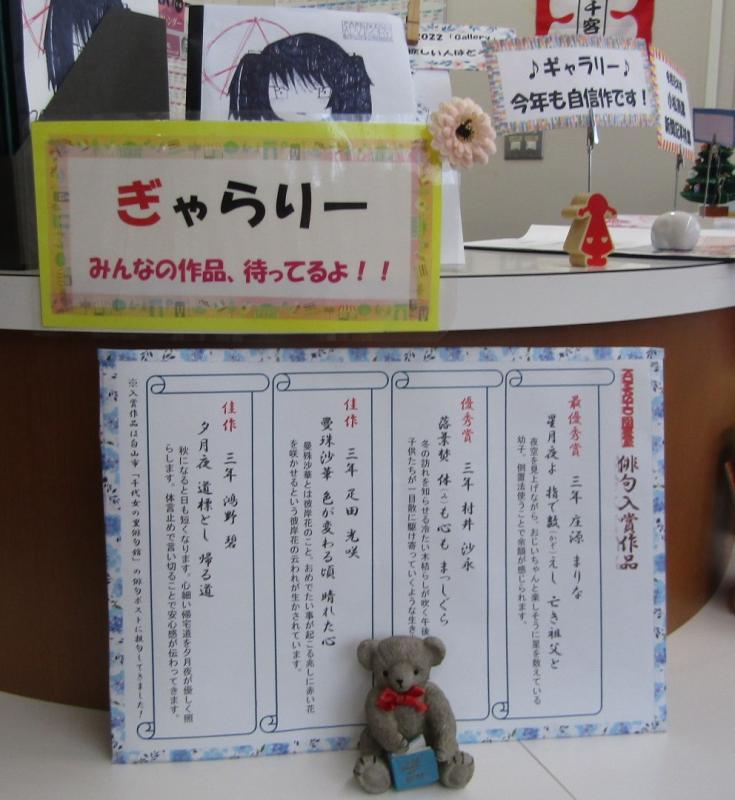 ♪ギャラリー♪
今年も自信作です！
ぎゃらりー
みんなの作品、待ってるよ！！
俳句入賞作品
最優秀賞 三年 庄源 まりな
星月夜よ 指で数(かぞ)えし 亡き祖父と
夜空を見上げながら、おじいちゃんと楽しそうに星を数えている
幼子。倒置法使うことで余韻が感じられます。
優秀賞 三年 村井 沙永
落葉焚 体(み)も心も まっしぐら
冬の訪れを知らせる冷たい木枯らしが吹く午後
子供たちが一目散に駆け寄っていくような生き
佳作 三年 疋田 光咲
曼珠沙華 色が変わる頃 晴れた心
曼珠沙華とは彼岸花のこと。おめでたい事が起こる兆しに赤い花
を咲かせるという彼岸花の云われが生かされています。
佳作 三年 鴻野 碧
夕月夜 道標とし 帰る道
秋になると日も短くなります。心細い帰宅道を夕月夜が優しく照
らします。体言止めで言い切ることで安心感が伝わってきます。
※入賞作品は白山市「千代女の里俳句館」の俳句ポストに投句してきました！